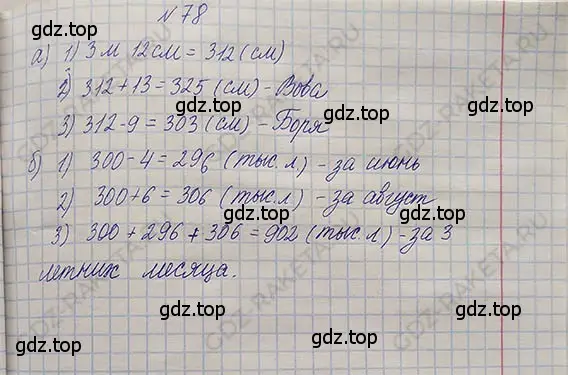 № 78
а) 1) 3 м 12 см = 312 (см)
2) 312 + 13 = 325 (см) - Вова
3) 312 - 9 = 303 (см) - Боря
б) 1) 300 - 4 = 296 (тыс. л) - за июнь
2) 300 + 6 = 306 (тыс. л) - за август
3) 300 + 296 + 306 = 902 (тыс. л) - за 3
летних месяца.
gdz.top gdz.top gdz.top
gdz.top gdz.top gdz.top
gdz.top gdz.top gdz.top
gdz.top gdz.top gdz.top
GDZ-RAKETA.RU
GDZ-RAKETA.RU
GDZ-RAKETA.RU
GDZ-RAKETA.RU